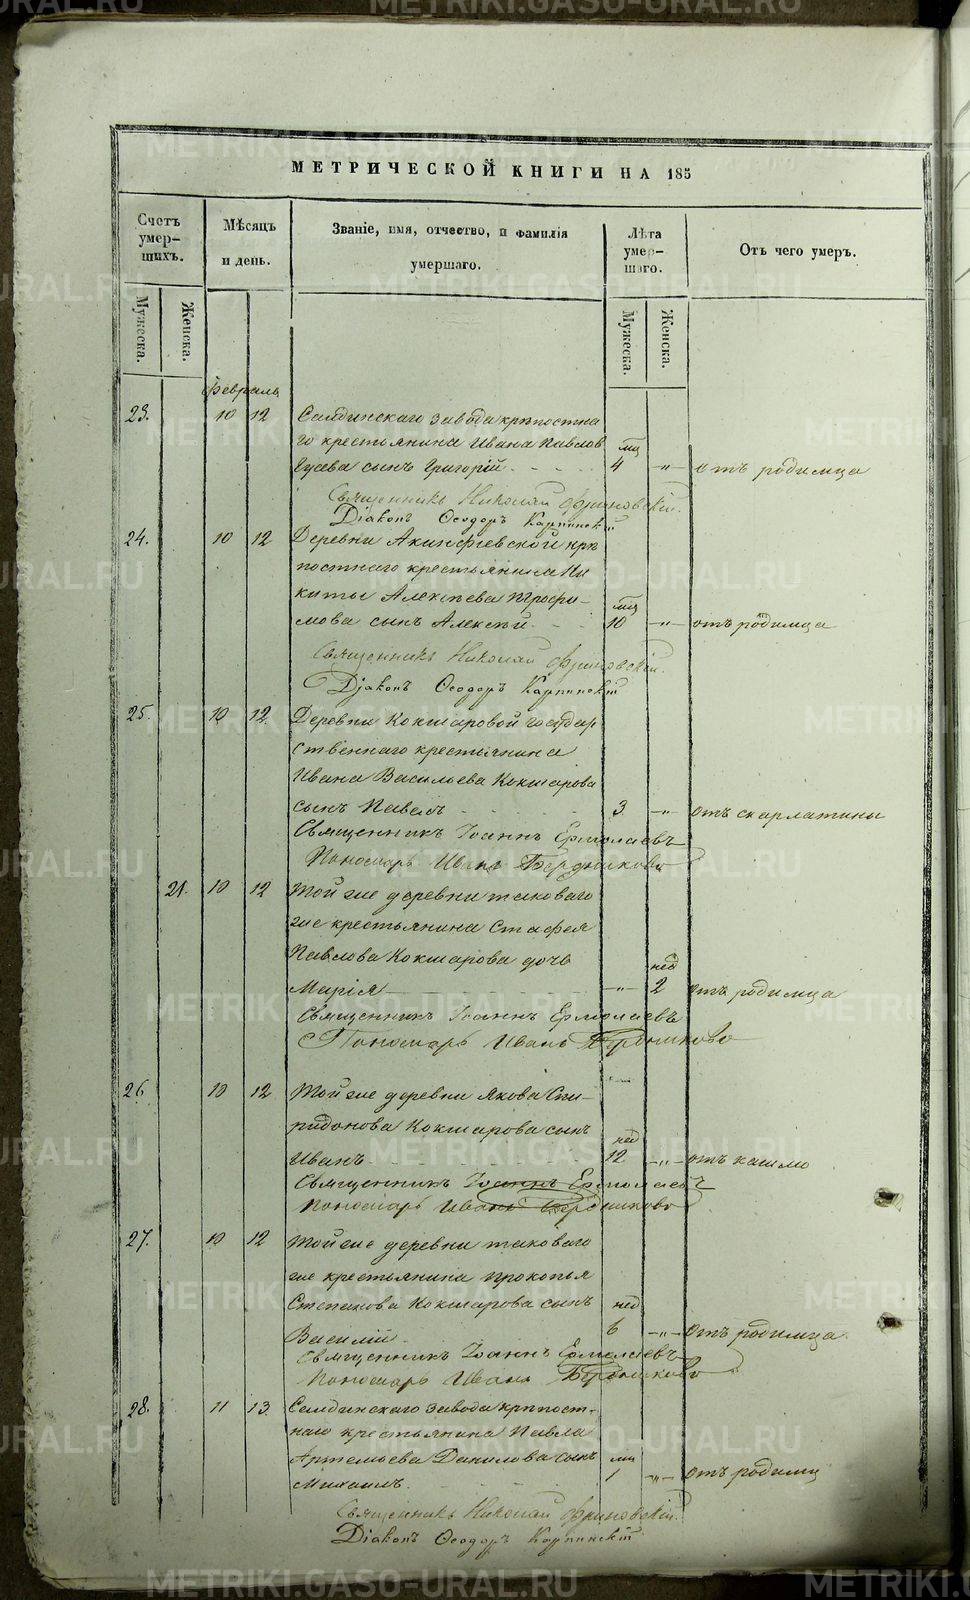 МЕТРИЧЕСКОЙ КНИГИ НА 185
Счетъ умер-шихъ.
Мѣсяцъ и день.
Званіе, имя, отчество, и фамилія умершаго.
Лѣта умер-шаго.
Отъ чего умеръ.
Мужеска.
Женска.
Мужеска.
Женска.
февраль
23. 10 12 Салдинскаго завода крѣпостна
го крестьянина Ивана Павлов мц
Гусева сынъ Григорій 4 -"- отъ родимца
Священникъ Николай Фриновскій.
Діаконъ Ѳеодоръ Карпинскій
24. 10 12 Деревни Акинфіевской крѣ
постнаго крестьянина Ни
киты Алексѣева Трофи- мц
мова сынъ Алексѣй 10 -"- отъ родимца
Священникъ Николай Фриновскій.
Діаконъ Ѳеодоръ Карпинскій
25. 10 12. Деревни Кокшаровой государ
ственнаго крестьянина
Ивана Васильева Кокшарова
сынъ Павелъ 3 -"- отъ скарлатины
Священникъ Іоаннъ Ермолаевъ
Пономарь Иванъ Бердниковъ
21. 10 12 Той же деревни таковаго
же крестьянина Стафея
Павлова Кокшарова дочь нед
Марія -"- 2 отъ родимца
Священникъ Іоаннъ Ермолаевъ
Пономарь Иванъ Бердниковъ
26 10 12 Той же деревни Якова Спи-
ридонова Кокшарова сынъ нед
Иванъ 12 -"- отъ кашлю
Священникъ Іоаннъ Ермолаевъ
Пономарь Иванъ Бердниковъ
27. 10 12 Той же деревни таковаго
же крестьянина Прокопья
Степанова Кокшарова сынъ нед
Василій 6 -"- отъ родимца
Священникъ Іоаннъ Ермолаевъ
Пономарь Иванъ Бердниковъ
28. 11 13. Салдинскаго завода крѣпост-
наго крестьянина Павла
Артемьева Данилова сынъ мц
Михаилъ. 1 -"- отъ родимц
Священникъ Николай Фриновскій.
Діаконъ Ѳеодоръ Карпинскій
METRIKI.GASO-URAL.RU